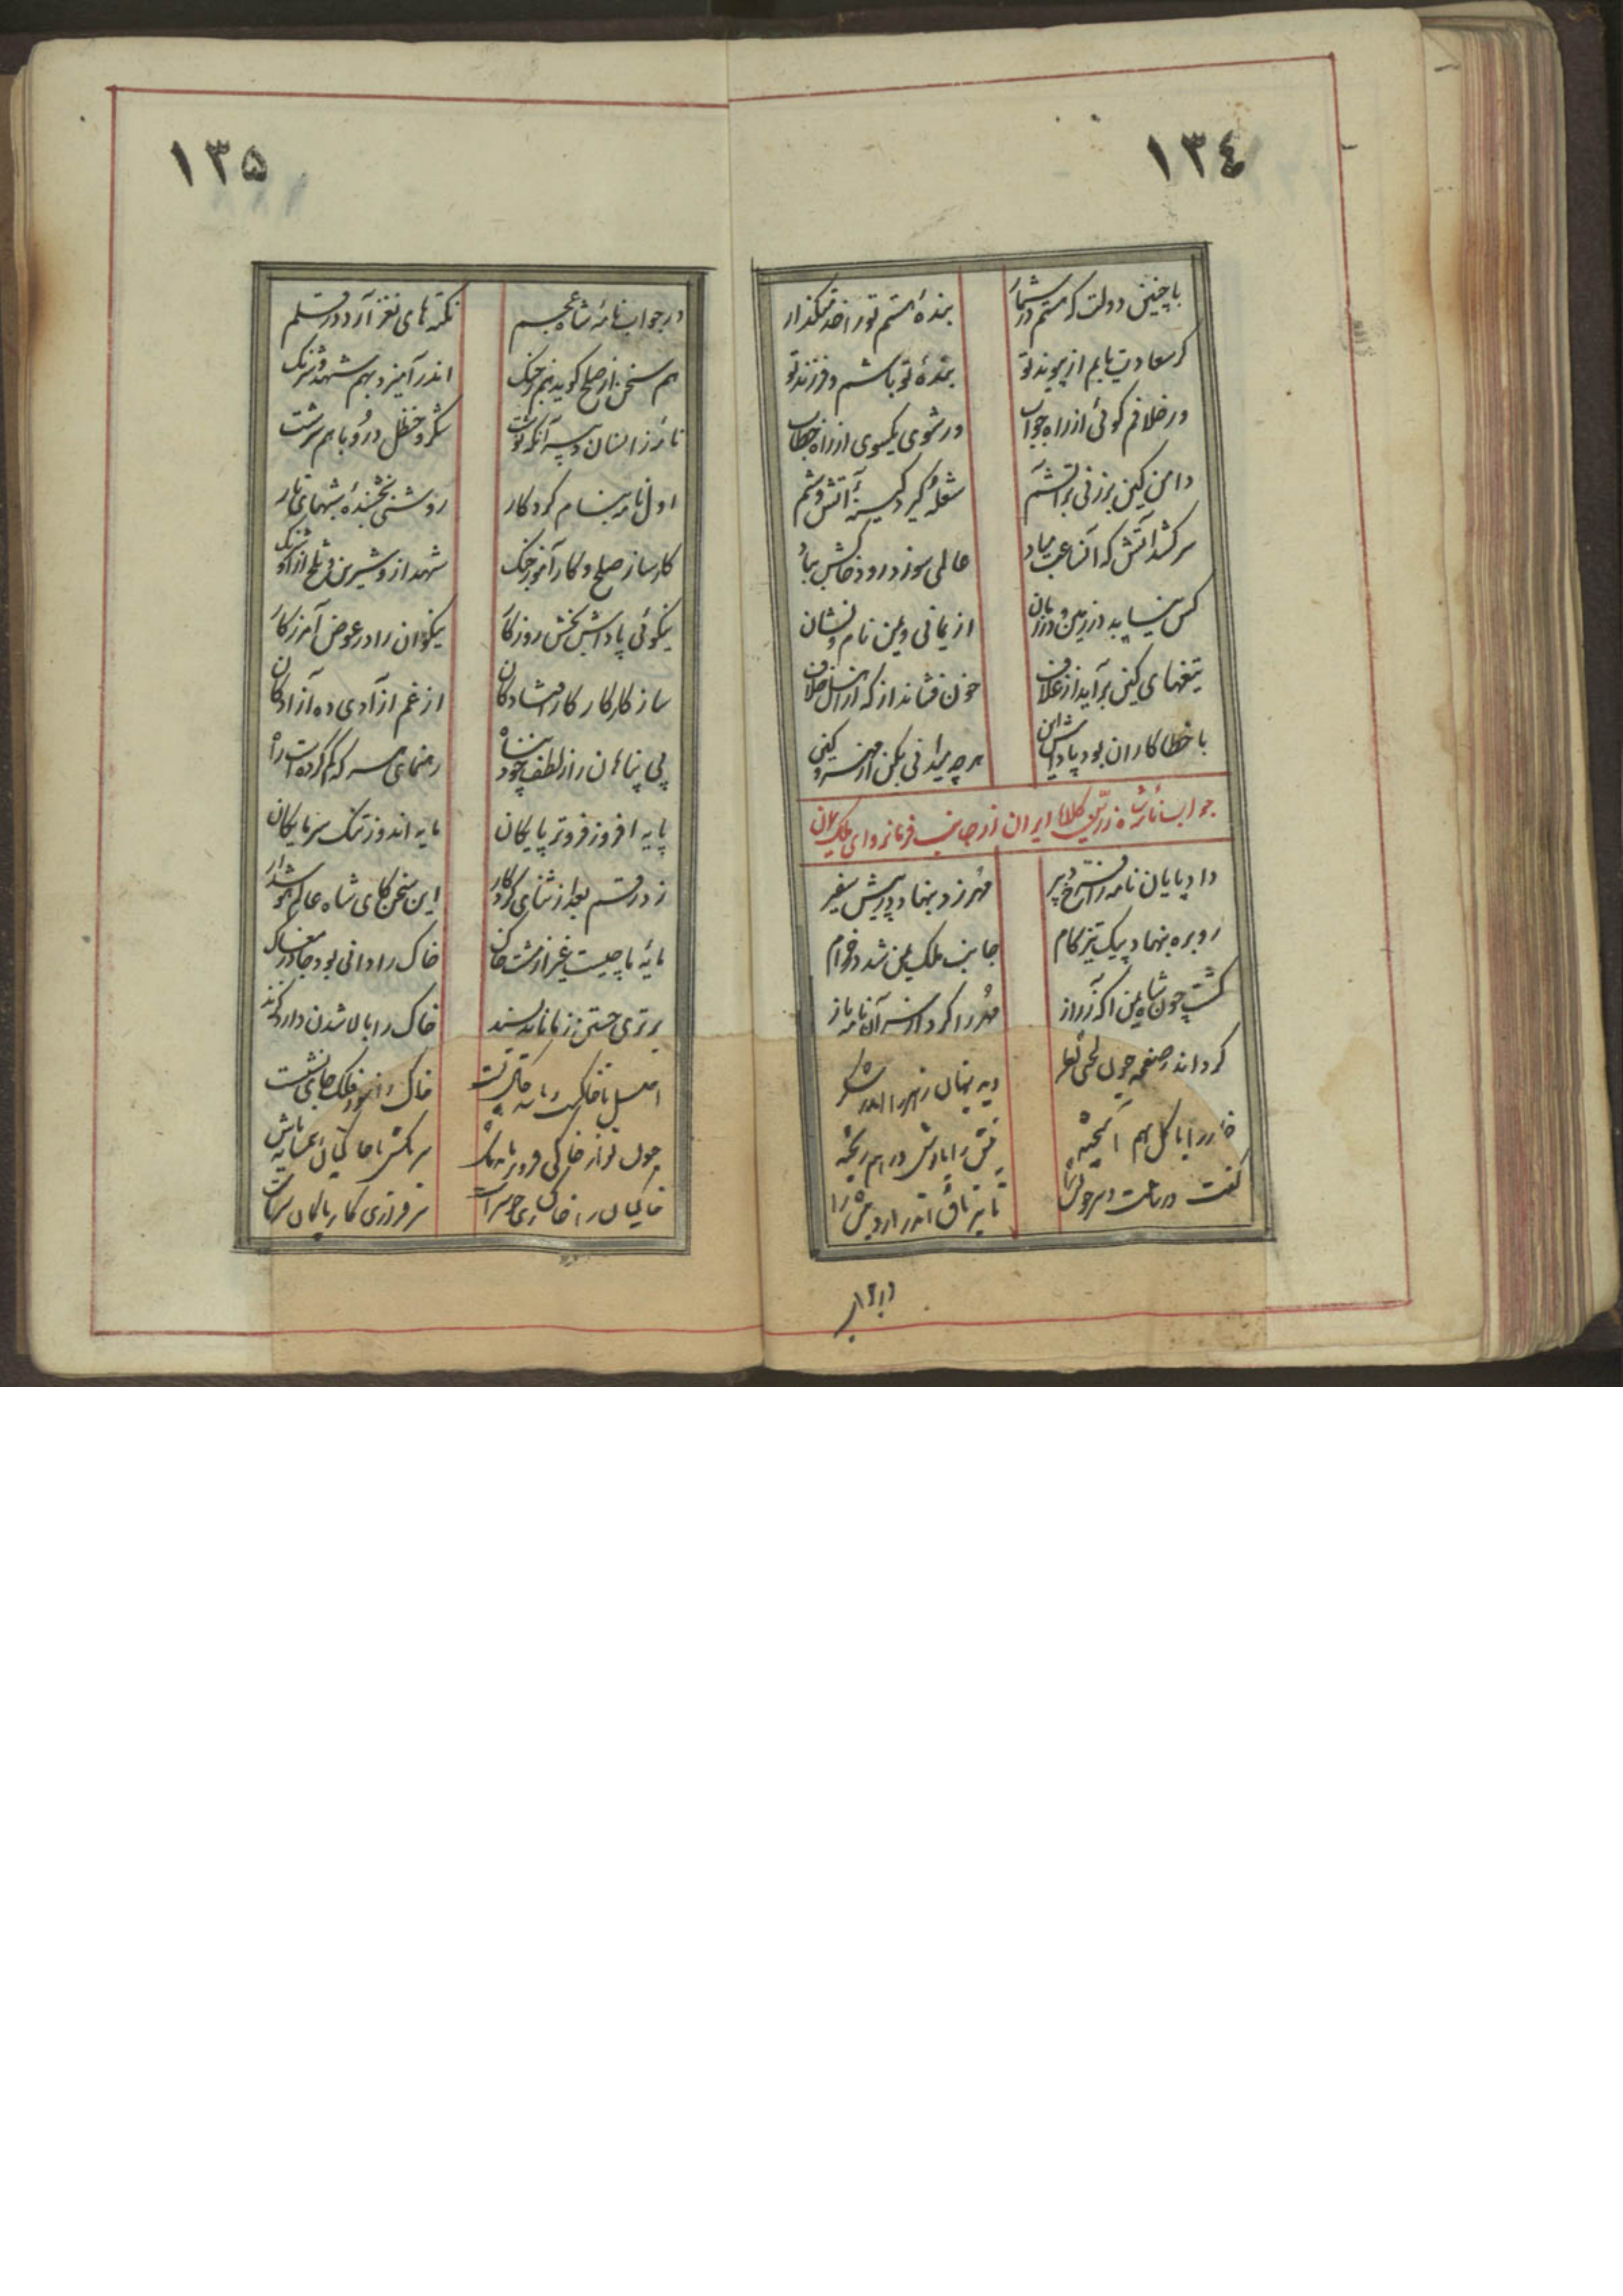 ١٣٤
با چنین دولت که هستم در شمار بندهٔ هستم تو را خدمتگذار
گر سعادت یابم از پیوند تو بندهٔ تو باشم و فرزند تو
ور خلافم گوئی از راه جواب ور شوی یکسوی از راه خطاب
دامن کین بر زنی بر آتشم شعله گیرد کینهٔ آتش وشم
سرکشد آتش که آنساعت مباد عالمی سوزد رود خاکش بباد
کس نیابد در زمین و در زمان از یمانی و یمن نام و نشان
تیغهای کین برآید از غلاف خون فشاند از که از اهل خلاف
با خطاکاران بود پاداش این هر چه میدانی بکن از مهر و کین
جواب نامهٔ شاه زرین کلاه ایران از جانب فرمانروای ملک یمان
داد پایان نامه را فرخ دبیر مهر زد بنهاد در پیش سفیر
رو بره بنهاد پیک تیزگام جانب ملک یمن شد در خرام
گشت چون شاه یمن آگه ز راز مهر را کرد از سر آن نامه باز
کرد اندر صفحه چون لختی نظر دید پنهان زهر را اندر شکر
خار را با گل بهم آمیخته نیش را با نوش در هم ریخته
گفت در ساعت دبیر خویش را تا بیناق اندر آرد نیش را
در جواب
١٣٥
در جواب نامهٔ شاه عجم نکته های نغز آرد در قلم
هم سخن از صلح گوید هم ز جنگ اندر آمیزد بهم شهد و شرنگ
نامه زانسان دبیر آنگه نوشت شکر و حنظل در او با هم سرشت
اول نامه بنام کردگار روشنی بخشندهٔ شبهای تار
کارساز صلح و کار آموز جنگ شهد از او شیرین و تلخ از او شرنگ
نیکوئی پاداش بخش روزگار نیکوان را در عوض آمرزگار
ساز کار کار کار افتادگان از غم آزادی ده آزادگان
بی پناهان را ز لطف خود پناه رهنمای هر که گم کرده است راه
پایه افروز فروتر پایگان مایه اندوز تنک سرمایگان
زد رقم بعد از ثنای کردگار این سخن کای شاه عالم هوشدار
مایهٔ ما چیست غیر از مشت خاک خاک را دانی بود جا در مغاک
برتری جستن ز ما ناید پسند خاک را بالا شدن دارد گزند
اصل ما خاکست و مایه خاکی است خاک را نبود فلک جای نشست
چون تو از خاکی فروتر مایه باش سرمکش با خاکیان همسایه باش
خاکیان را خاکساری خوشتر است سرفرازی کار بالای سر است